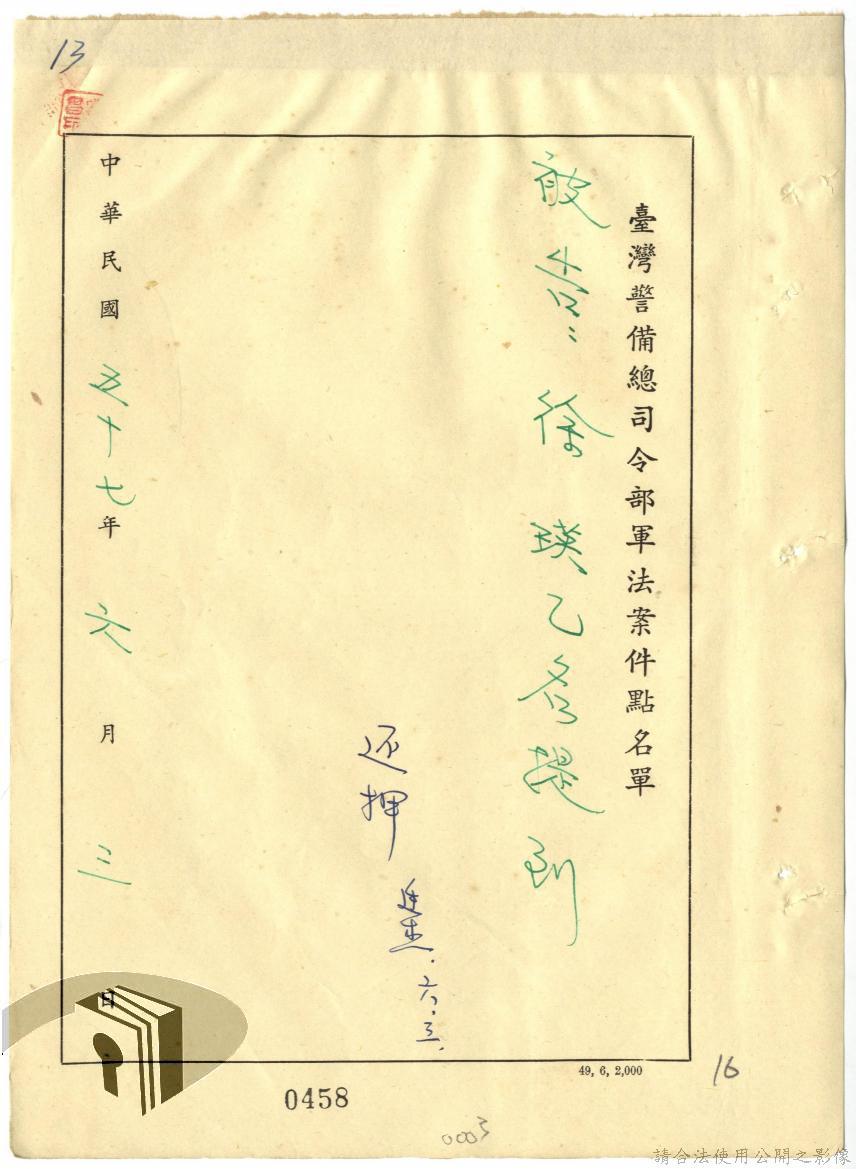 13
臺灣警備總司令部軍法案件點名單
被告:徐瑛乙名提到
还押
六.三.
中華民國五十七年六月三日
49, 6, 2,000
16
0458
0003
請合法使用公開之影像